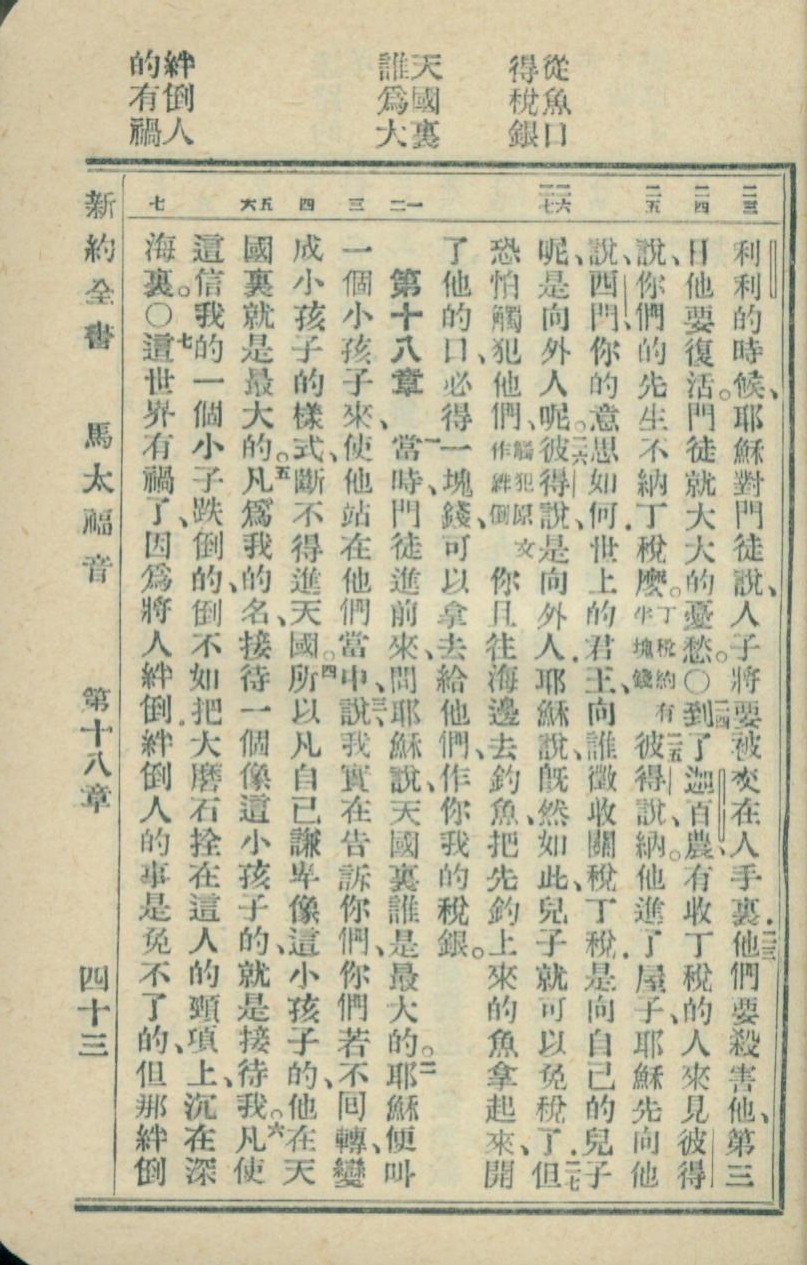 從魚口
得稅銀
天國裏
誰爲大
絆倒人
的有禍
二三
二四
二五
二六
二七
一
二
三
四
五
六
七
利利的時候、耶穌對門徒說、人子將要被交在人手裏.二三他們要殺害他、第三
日他要復活。門徒就大大的憂愁。〇二四到了迦百農、有收丁稅的人來見彼得
說、你們的先生不納丁稅麽。丁稅約有半塊錢二五彼得說、納。他進了屋子、耶穌先向他
說、西門、你的意思如何.世上的君王、向誰徵收關稅丁稅.是向自己的兒子
呢、是向外人呢。二六彼得說、是向外人.耶穌說、旣然如此、兒子就可以免稅了.二七但
恐怕觸犯他們、觸犯原文作絆倒你且往海邊去釣魚、把先釣上來的魚拿起來、開
了他的口、必得一塊錢、可以拿去給他們、作你我的稅銀。
第十八章、一當時、門徒進前來、問耶穌說、天國裏誰是最大的。二耶穌便叫
一個小孩子來、使他站在他們當中、三說、我實在告訴你們、你們若不回轉、變
成小孩子的樣式、斷不得進天國。四所以凡自己謙卑像這小孩子的、他在天
國裏就是最大的。五凡爲我的名、接待一個像這小孩子的、就是接待我。六凡使
這信我的一個小子跌倒的、倒不如把大磨石拴在這人的頸項上、沉在深
海裏。〇七這世界有禍了、因爲將人絆倒.絆倒人的事是免不了的、但那絆倒
新約全書 馬太福音 第十八章 四十三